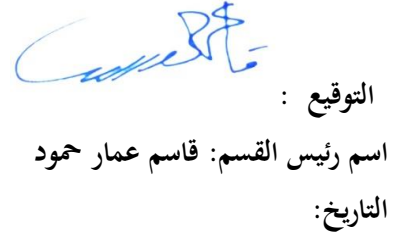 التوقيع :
اسم رئيس القسم: قاسم عمار حمود
التاريخ: